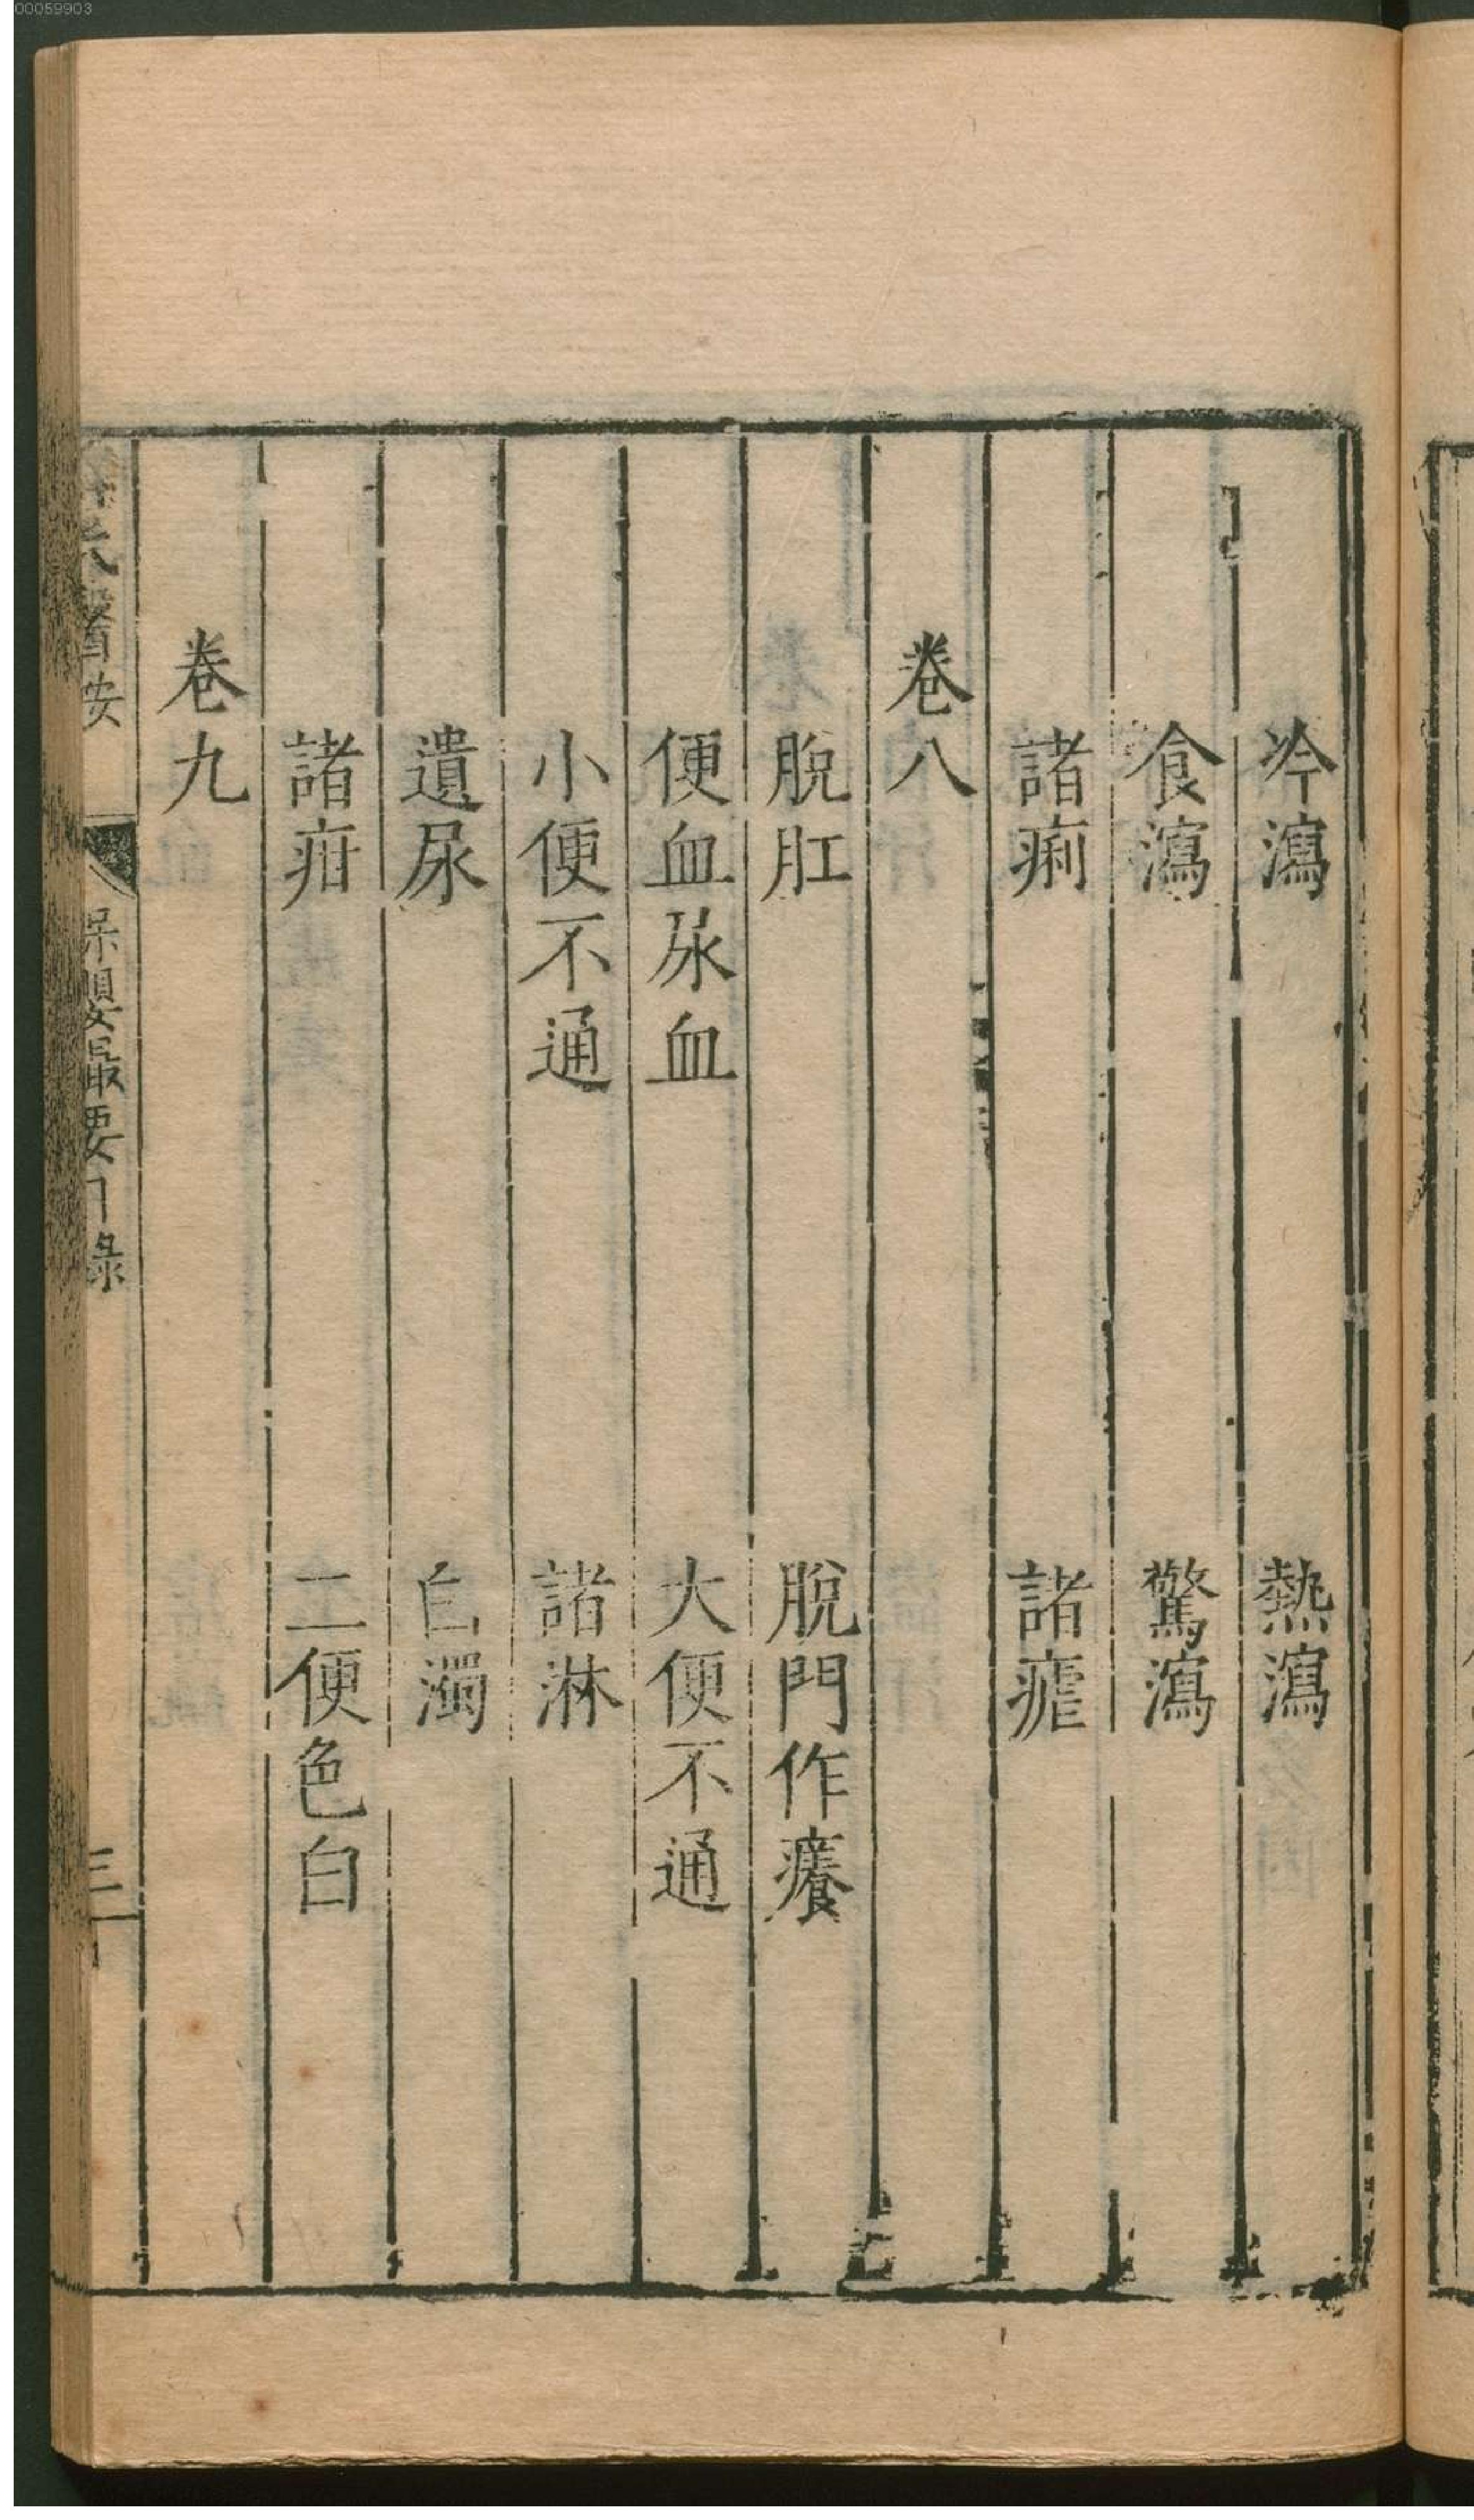 00059903
冷瀉　熱瀉
食瀉　驚瀉
諸痢　諸瘧
卷八
脫肛　脫門作癢
便血尿血　大便不通
小便不通　諸淋
遺尿　白濁
諸疳　二便色白
卷九
醫按
保嬰撮要目錄
三